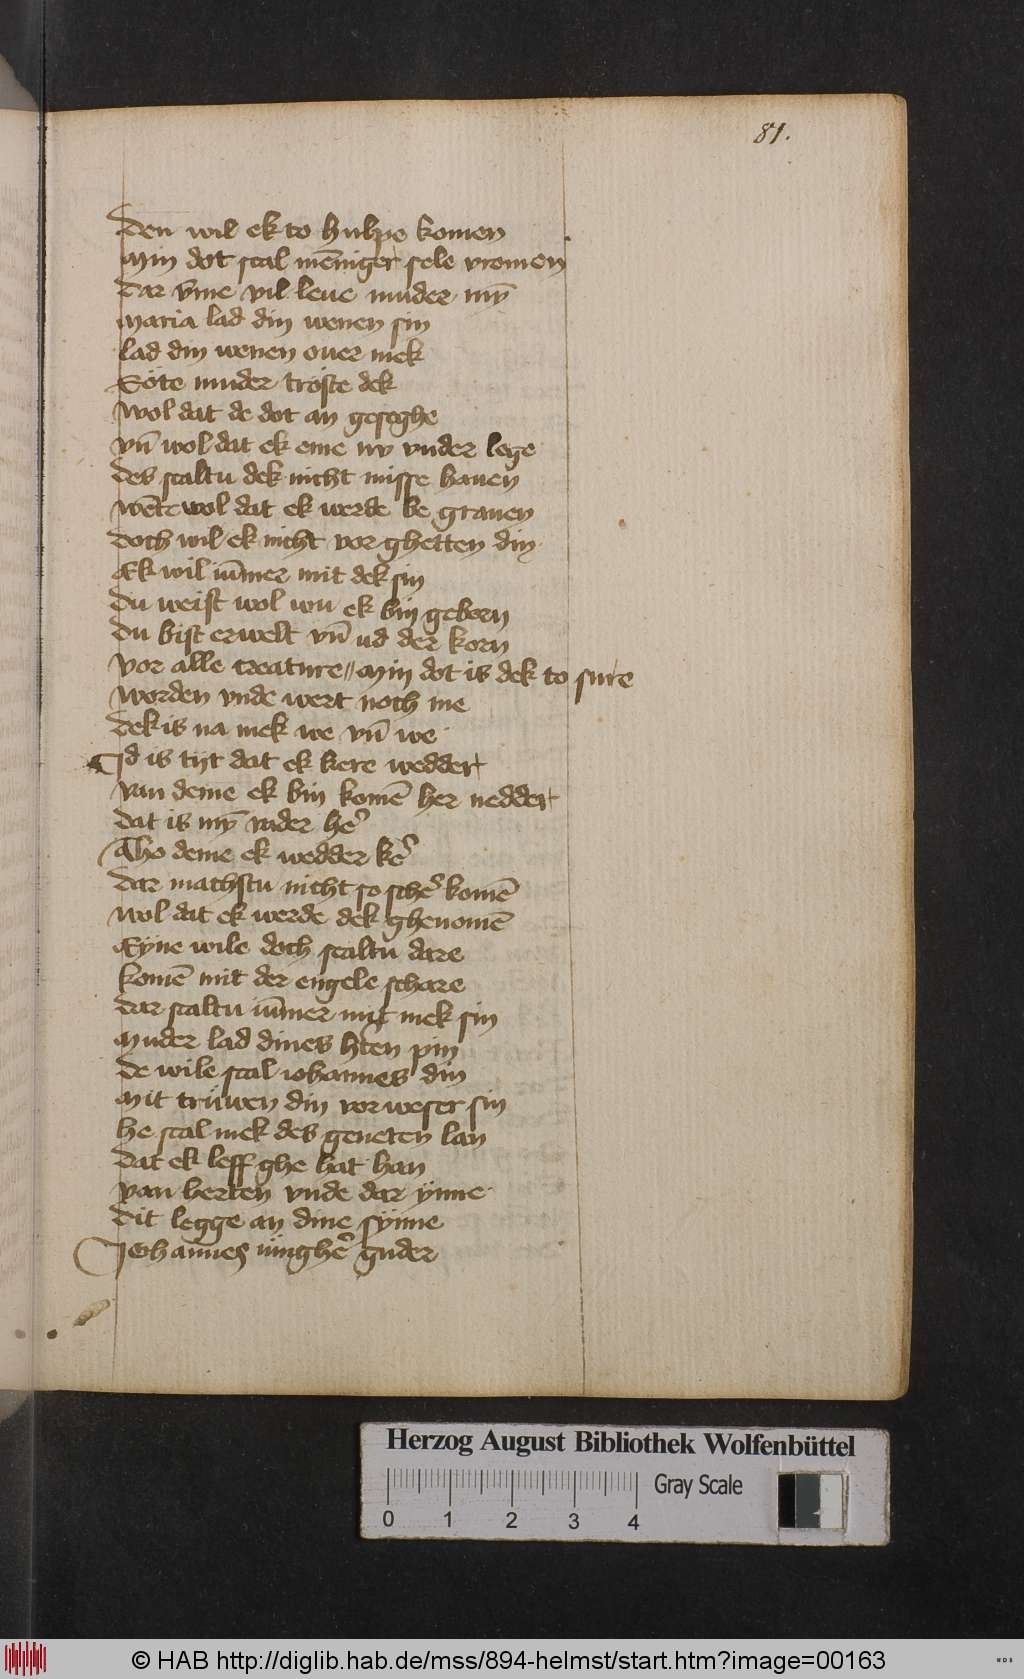 81.
Den wil ek to hulpe komen
Min dot scal me̅niger sele vromen
Dar v̅me vil leue muder my̅
Maria lad din wenen sin
lad din wenen ouer mek
Söte muder tröste dek
Wol dat de dot an geseghe
vn̅ wol dat ek eme ny vnder lege
Des scaltu dek nicht misse hauen
We̅te wol dat ek werde be grauen
Doch wil ek nicht vor ghetten din
Ek wil iu̅mer mit dek sin
Du weist wol wu ek bin geborn
Du bist erwelt vn̅ ud der korn
Vor alle creature // Min dot is dek to sure
Worden vnde wert noch me
Dek is na mek we vn̅ we
Id is tijt dat ek kere wedder
Van deme ek bin kome̅ her nedder
Dat is my̅ vader he᷑
Tho deme ek wedder ke᷑
Dar machstu nicht so sche᷑ kome̅
Wol dat ek werde dek ghenome̅
Eyne wile doch scaltu dare
kome̅ mit der engele schare
Dar scaltu iu̅mer mit mek sin
Muder lad dines hten pin
De wile scal iohannes din
Mit trüwen din vorweser sin
he scal mek des geneten lan
Dat ek leff ghe hat han
Van herten vnde dar ynne
Dit legge an dine synne
Joha̅nes iu̅nghe᷑ guder
Herzog August Bibliothek Wolfenbüttel
Gray Scale
0 1 2 3 4
© HAB http://diglib.hab.de/mss/894-helmst/start.htm?image=00163